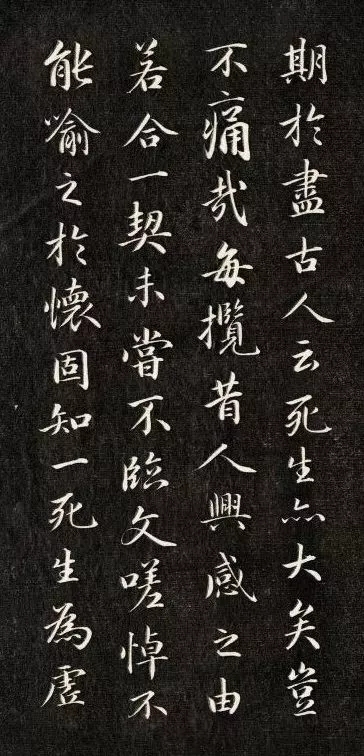 期於盡古人云死生亦大矣豈
不痛哉每攬昔人興感之由
若合一契未嘗不臨文嗟悼不
能喻之於懷固知一死生為虛